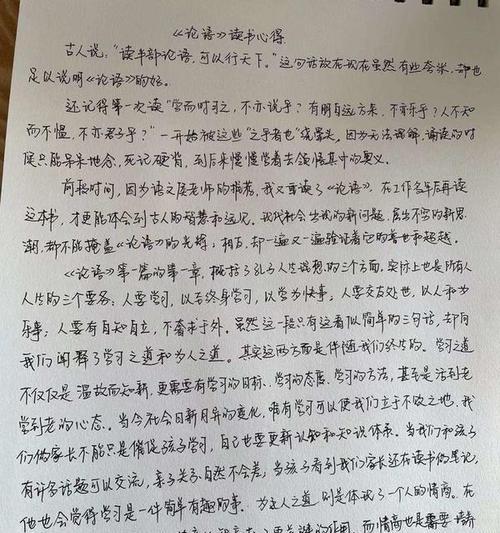 《论语》读书心得
古人说，"读半部论语，可以行天下。"这句话放在现在虽然有些夸张，却也
足以说明《论语》的好。
还记得第一次读"学而时习之，不亦说乎？有朋自远方来，不亦乐乎？人不知
而不愠，不亦君子乎？"一开始被这些"之乎者也"绕晕头，因为无法理解，诵读的时
候只能呆呆地念，死记硬背，到后来慢慢学着去领悟其中的奥义。
前段时间，因为语文层老师的推荐，我又重读了《论语》，在工作多年后再读
这本书，才更能体会到古人的智慧和远见。现代社会出现的新问题，层出不穷的新思
潮，都不能掩盖《论语》的光辉；相反，却一遍又一遍验证着它的睿智和超越。
《论语》第一篇的第一章，概括了孔子人生理想的三个方面，实际上也是所有人
人生的三个要务：人要学习，以求终身学习，以学为快事；人要交友处世，以人和为
乐事；人要有自知自立，不奢求于外。虽然这一段只有这看似简单的三句话，却向
我们阐释了学习之道和为人之道。其实这两方面是伴随我们终生的。学习之道
不仅仅是温故而知新，更需要有学习的目标、学习的态度、学习的方法，甚至是活到老
学到老的心态。当今社会日新月异的变化，唯有学习可以使我们立于不败之地。我
们做家长不能只是督促孩子学习，自己也要更新认知和知识体系。当我们和孩子
有许多话题可以交流，亲子关系自然不会差，当孩子看到我们家长还在读书做笔记，
他也会觉得学习是一件简单有趣的事。为之人之道则是体现了一个人的情商。在
而情商也是需要培养